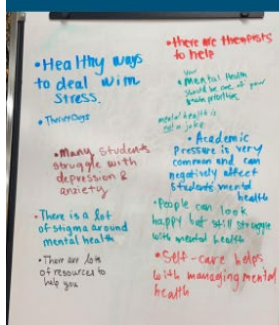 •Healthy ways
to deal with
stress.
•TherapyDogs
•Many students
struggle with
depression &
anxiety
•There is a lot
of stigma around
mental health
•There are lots
of resources to
help you
•there are therapists
to help
Your
•Mental Health
should be one of your
main priorities
mental health is
not a joke
•Academic
Pressure is very
common and can
negatively affect
students mental
health
•People can look
happy but still struggle
with mental health
•Self-care helps
with managing mental
health